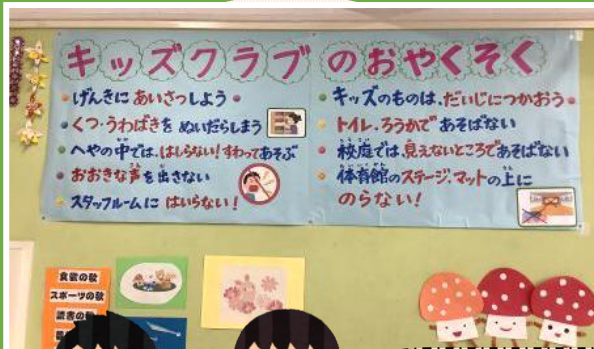 キッズクラブのおやくそく
げんきにあいさつしよう
くつ・うわばきを ぬいだらしまう
へやの中では、はしらない!すわってあそぶ
おおきな声を出さない
スタッフルームに はいらない!
キッズのものは、だいじにつかおう
トイレ・ろうかで あそばない
校庭では、見えないところであそばない
体育館のステージ、マットの上に
のらない!
食欲の秋
スポーツの秋
読書の秋